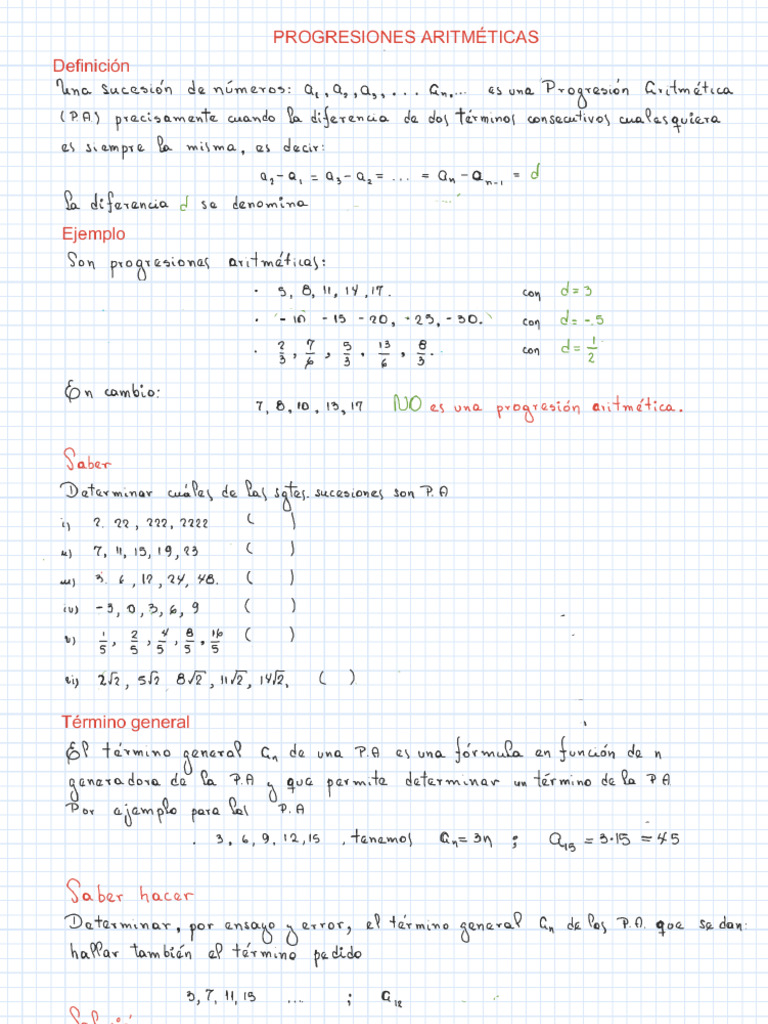 PROGRESIONES ARITMÉTICAS
Definición
Una sucesión de números: a₁, a₂, a₃, ... aₙ, ... es una Progresión Aritmética
(P.A) precisamente cuando la diferencia de dos términos consecutivos cualesquiera
es siempre la misma, es decir:
a₂ - a₁ = a₃ - a₂ = ... = aₙ - aₙ₋₁ = d
La diferencia d se denomina
Ejemplo
Son progresiones aritméticas:
· 5, 8, 11, 14, 17. con d = 3
· -10 -15 -20, -25, -30. con d = -5
· 2/3, 7/6, 5/3, 13/6, 8/3. con d = 1/2
En cambio:
7, 8, 10, 13, 17 NO es una progresión aritmética.
Saber
Determinar cuáles de las sgtes. sucesiones son P.A
i) 2. 22, 222, 2222 ( )
ii) 7, 11, 15, 19, 23 ( )
iii) 3. 6, 12, 24, 48. ( )
iv) -3, 0, 3, 6, 9 ( )
v) 1/5, 2/5, 4/5, 8/5, 16/5 ( )
vi) 2√2, 5√2 8√2, 11√2, 14√2. ( )
Término general
El término general aₙ de una P.A es una fórmula en función de n
generadora de la P.A y que permite determinar un término de la P.A
Por ejemplo para las P.A
. 3, 6, 9, 12, 15 , tenemos aₙ = 3n ; a₁₅ = 3·15 = 45
Saber hacer
Determinar, por ensayo y error, el término general aₙ de las P.A. que se dan:
hallar también el término pedido
3, 7, 11, 15 ... ; a₁₂
Solución